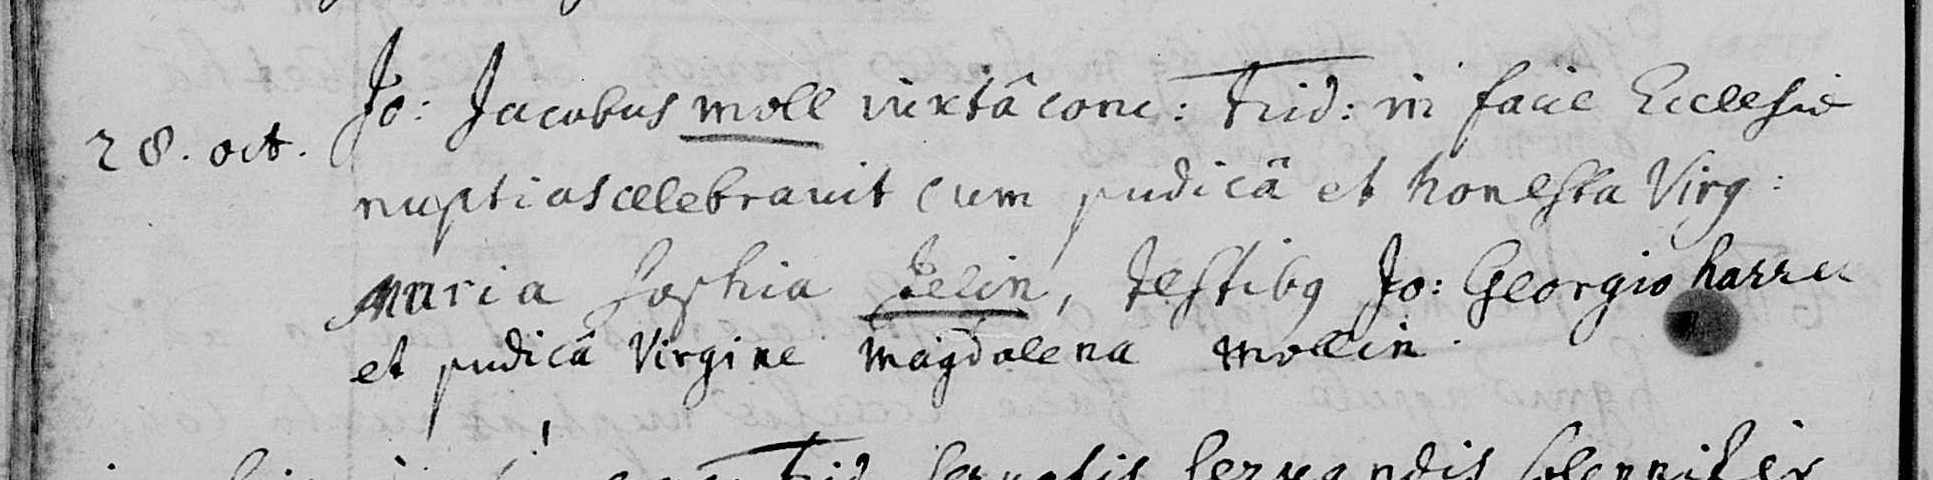 Jo: Jacobus Moll iuxtâ conc: Trid: in facie Ecclesiæ
28. oct.
nuptias celebrauit cum pudicâ et honesta Virg:
Maria Sophia Jelin, testibq Jo: Georgio harrer
et pudicâ Virgine Magdalena Mollin.
Trid servatis servandis solenniter